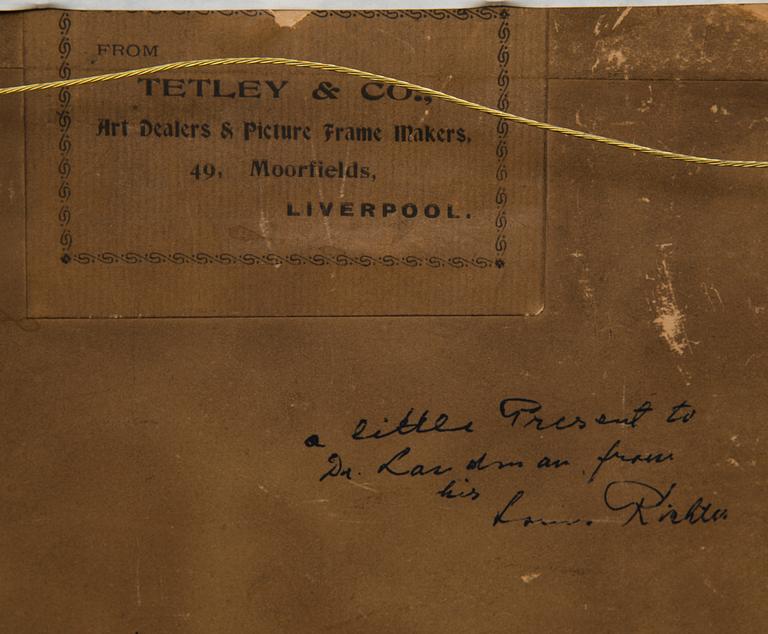 FROM
TETLEY & CO.,
Art Dealers & Picture Frame Makers,
49, Moorfields,
LIVERPOOL.
a little Present to
Dr. Landman from
his
Louis Richter